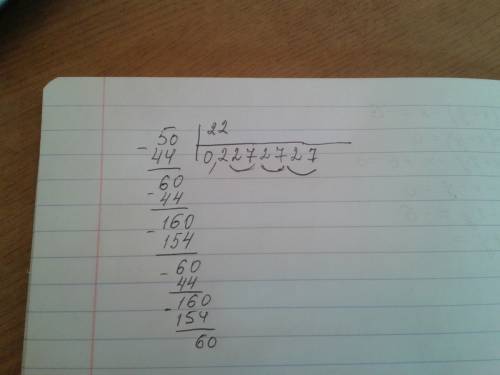 - 50 | 22
44 0,2272727
60
- 44
- 160
154
- 60
44
- 160
154
60